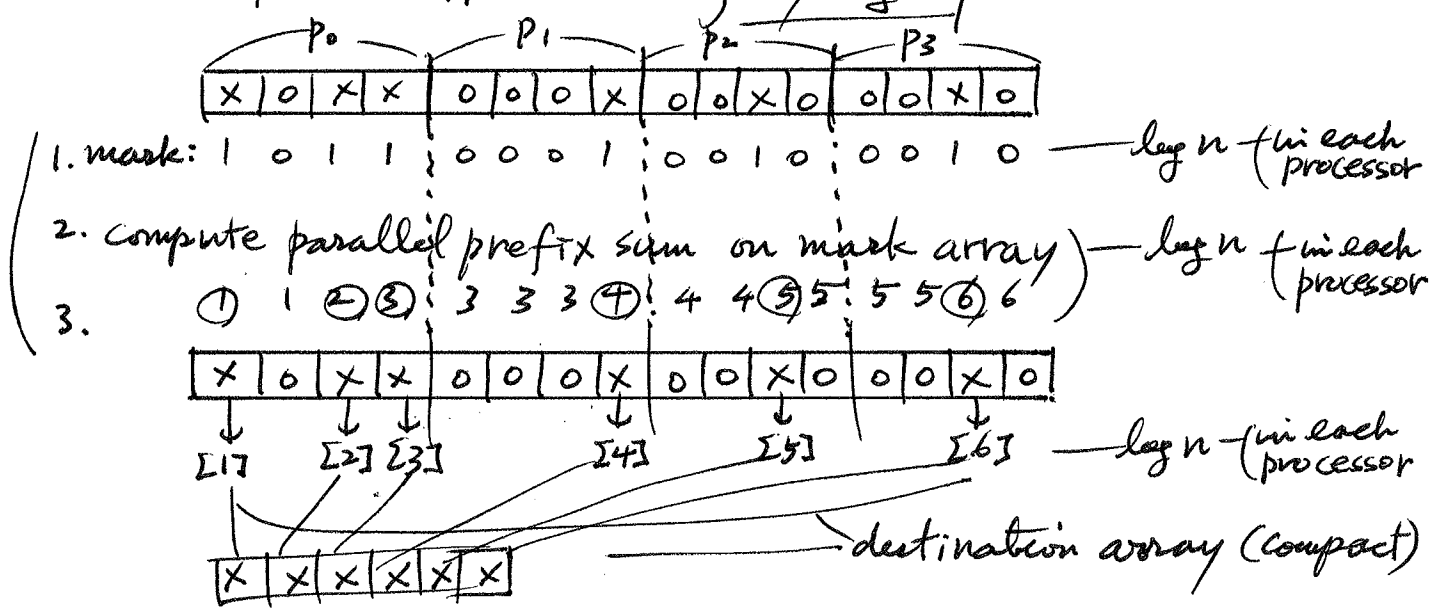 P0 P1 P2 P3
x 0 x x 0 0 0 x 0 0 x 0 0 0 x 0
1. mark: 1 0 1 1 0 0 0 1 0 0 1 0 0 0 1 0 — log n (in each processor
2. compute parallel prefix sum on mark array) — log n (in each processor
3. ① 1 ② ③ 3 3 3 ④ 4 4 ⑤ 5 5 5 ⑥ 6
x 0 x x 0 0 0 x 0 0 x 0 0 0 x 0
[1] [2] [3] [4] [5] [6] — log n (in each processor
destination array (compact)
x x x x x x